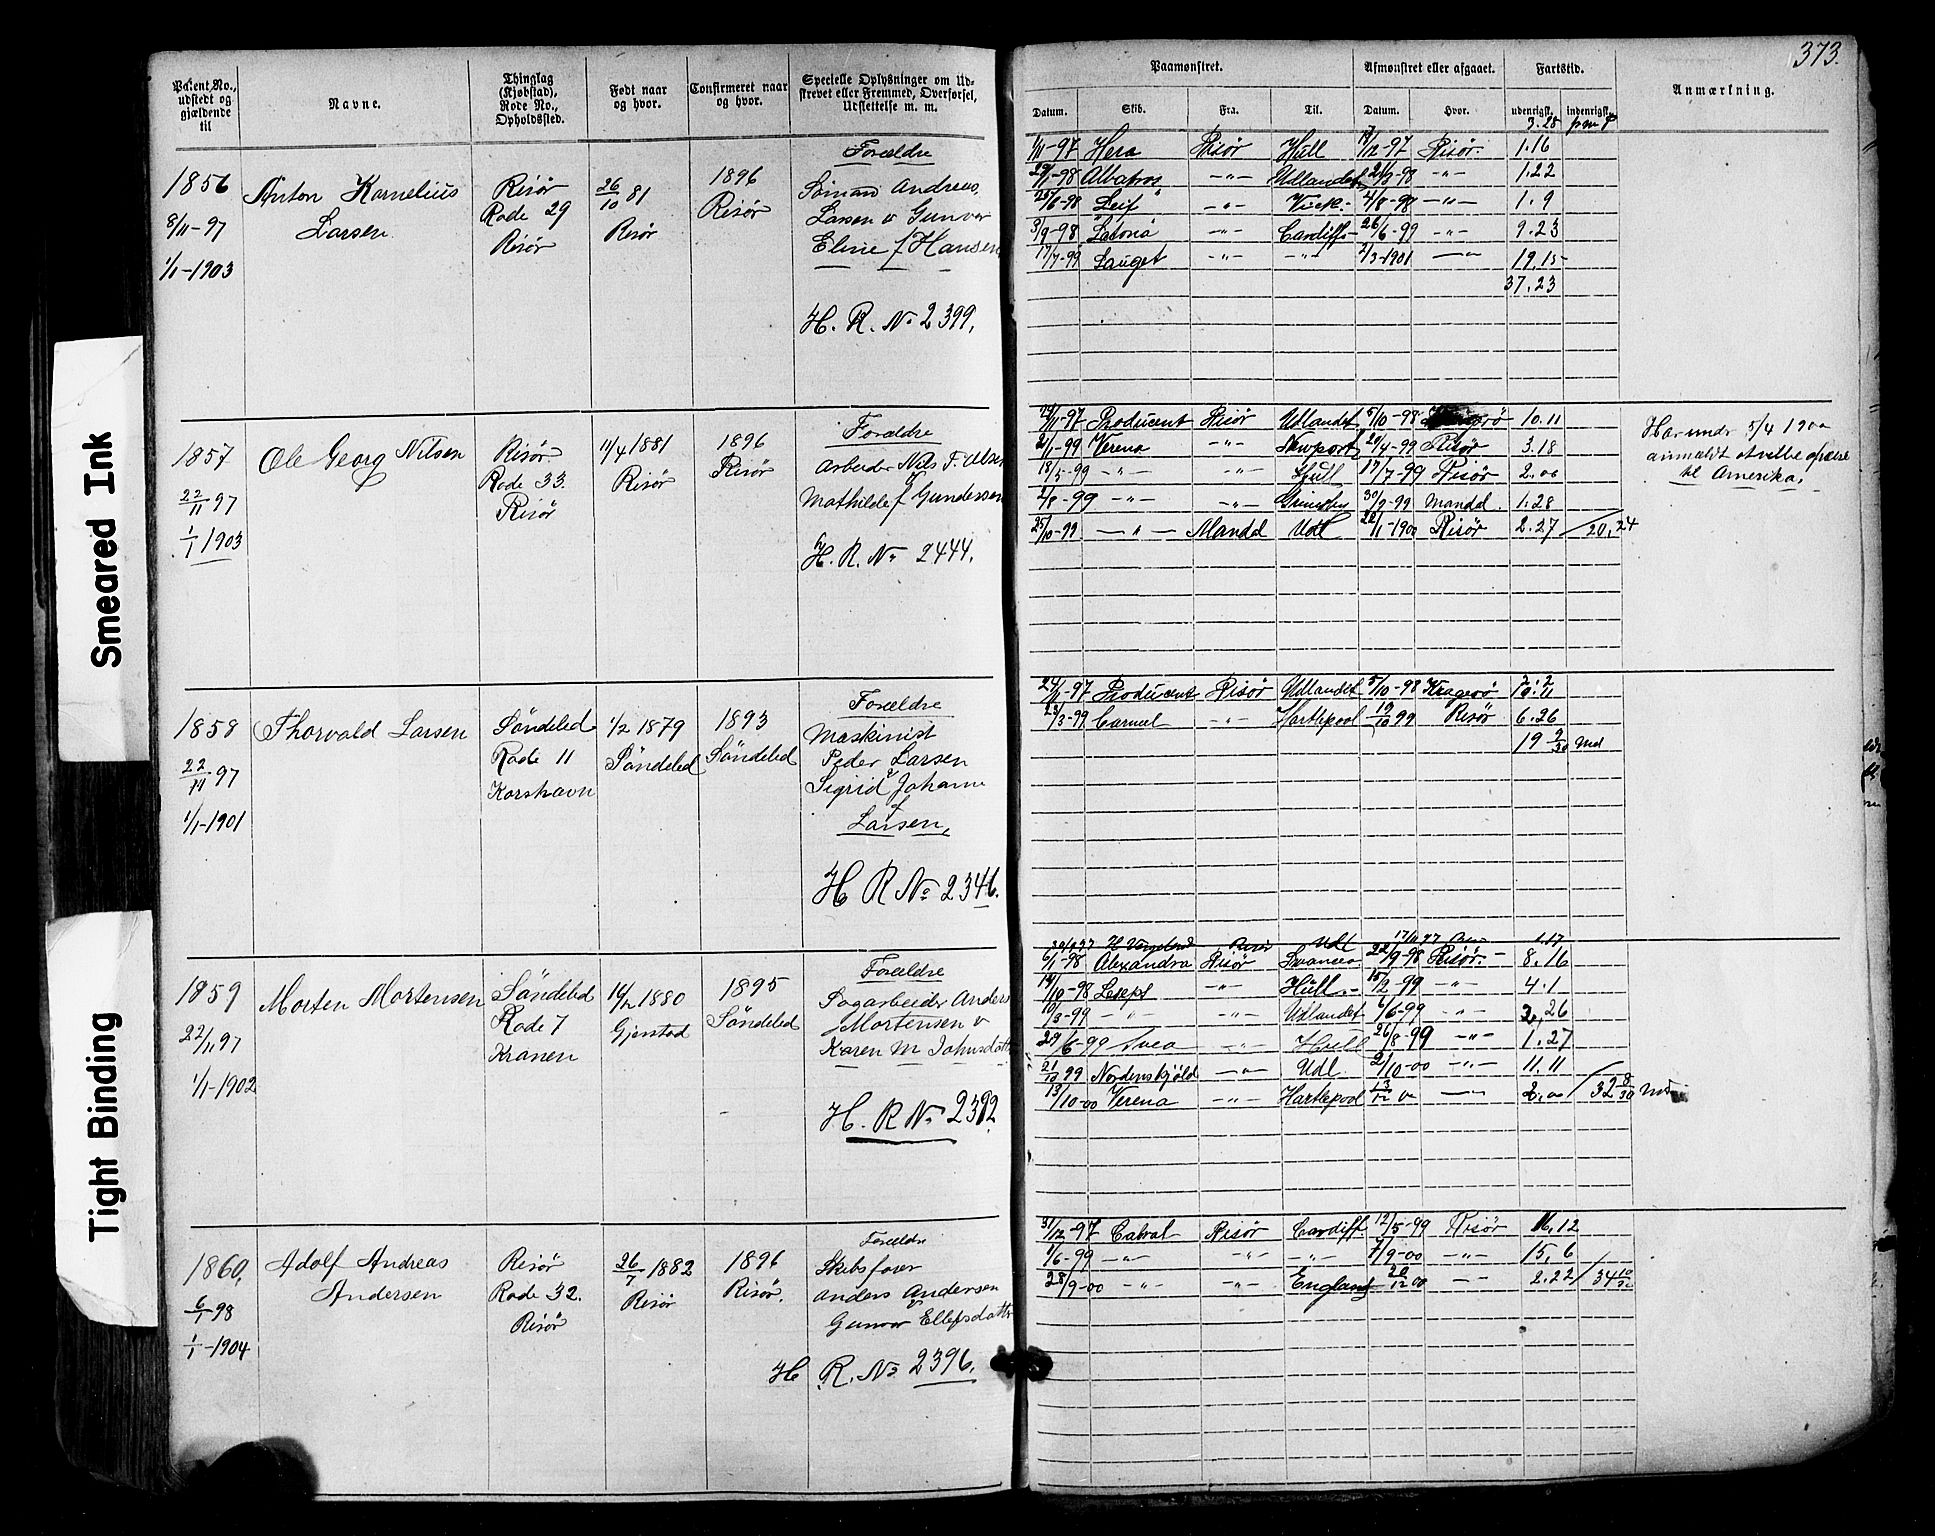 373.
Patent No., udstedt og gjældende til
Navne.
Thinglag (Kjøbstad), Rode No., Opholdssted.
Født naar og hvor.
Confirmeret naar og hvor.
Specielle Oplysninger om Udskrevet eller Fremmed, Overførsel, Udslettelse m. m.
Paamønstret.
Afmønstret eller afgaaet.
Fartstid.
Anmærkning.
Datum. Skib. Fra. Til. Datum. Hvor. udenrigst. indenrigst.
1856
8/11-97
1/1-1903
Anton Kornelius
Larsen
Risør
Rode 29
Risør
26/10 81
Risør
1896
Risør
Forældre
Sömand Andreas
Larsen & Gunvor
Eline f Hansen
H. R. No 2399.
3.28
1/11-97 Hera Risør Hull 17/12-97 Risør 1.16
Albatros -"- Udlandet -"- 1.22
Leif -"- 4/8-98 -"- 1.9
3/9-98 Latona -"- Cardiff 26/6-99 -"- 9.23
17/7-99 Lauget -"- -"- 2/3-1901 -"- 19.15
37.23
1857
22/11 97
1/1 1903
Ole Georg Nilsen
Risør
Rode 33.
Risør
11/4 1881
Risør
1896
Risør
Forældre
Arbeider Nils T. Olsen
&
Mathilde f Gundersen
H. R. No 2444.
Producent Risør Udlandet 5/10-98 10.11
2/1-99 Verena -"- Newport 20/4-99 Risør 3.18
18/5-99 -"- -"- Hull 17/7-99 Risør 2.00
2/8-99 -"- -"- Grimsby 30/9-99 Mandal 1.28
25/10-99 -"- Mandal Udl 22/1-1900 Risør 2.27 20.24
Har undr 5/4 1900
anmeldt at ville afreise
til Amerika.
1858
22/11 97
1/1-1901
Thorvald Larsen
Söndeled
Rode 11
Korshavn
1/2 1879
Söndeled
1893
Söndeled
Forældre
Maskinist
Peder Larsen
&
Sigrid Johanne
Larsen,
H R No 2346.
24/11-97 Producent Risør Udlandet 5/10-98 Kragerö 10.11
23/3-99 Carmel -"- Hartlepool 19/10 99 Risør 6.26
19 9/30 Md
1859
22/11 97
1/1-1902
Morten Mortensen
Söndeled
Rode 7
Kranen
14/2 1880
Gjerstad
1895
Söndeled
Forældre
Sagarbeider Anders
Mortensen &
Karen M Johnsdatter
H. R No 2392.
Udl 17/11 97 1.17
6/1-98 Alexandra Risør Swansea 22/9-98 Risør 8.16
14/10-98 Leseps -"- Hull 15/2-99 -"- 4.1
10/3-99 -"- -"- Udlandet 6/6-99 -"- 2.26
29/6-99 Svea -"- Hull 26/8-99 -"- 1.27
21/10 99 Nordenskjöld -"- Udl. 2/10-00 -"- 11.11
13/10-00 Verena -"- Hartlepool -"- 2,00 32 8/30 Md
1860.
6/1-98
1/1-1904
Adolf Andreas
Andersen
Risør
Rode 32.
Risør
26/7-1882
Risør
1896
Risør.
Forældre
Skibsfører
Anders Andersen
&
Gunvor Ellefsdatter
H R. No 2396.
31/12-97 Cabral Risør Cardiff 12/5-99 Risør 16.12
1/6-99 -"- -"- -"- 7/9-00 -"- 15.6
28/9-00 -"- -"- England 20/12 00 -"- 2.22 34 10/30
Smeared Ink
Tight Binding